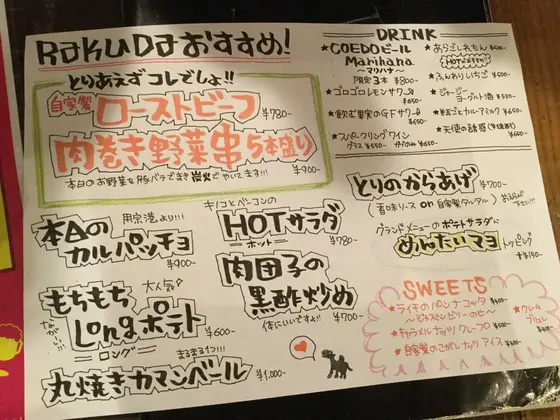 RAKUDaおすすめ!
とりあえずコレでしょ!!
自家製 ローストビーフ ¥780-
肉巻き野菜串5本盛り ¥900-
本日のお野菜を豚バラでまき炭火でやいてます!!!
用宗港より!!!
本Aの
カルパッチョ
¥900-
キノコとベーコンの
HOTサラダ
ホット
¥780-
大人気
もちもち
Longポテト
ロング
¥600-
ながーい!!!
肉団子の
黒酢炒め
体にいいですよ!!
¥700-
まるまる1つ!!!
丸焼きカマンベール ¥1,000-
DRINK
★COEDOビール
Marihana
〜マリハナ〜
限定3本 ¥800-
★ゴロゴロレモンサワー
¥650
★飲む果実のGFサワー
¥650
★スパークリングワイン
グラス ¥550
★あらごしれもん
HOT
★ふんわりいちご ¥600-
★ジャージー
ヨーグルト酒 ¥550-
★紅ごとカルーアミルク ¥650-
★天使の誘惑
とりのからあげ ¥700-
(香味ソース or 自家製タルタル)
グランドメニューのポテトサラダに
めんたいマヨ トッピング
+¥150-
SWEETS
★ライチのパンナコッタ
〜ジャスミンゼリーのせ〜
★キャラメルナッツクレープ ¥500-
★自家製のこがしナッツアイス
★クレーム
ブリュレ